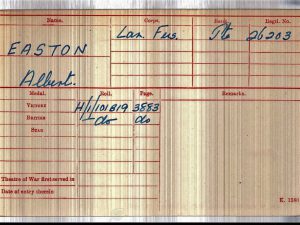 Name. Corps. Rank. Regtl. No.
EASTON Lan. Fus. Pte 26203
Albert.
Medal. Roll. Page. Remarks.
VICTORY H/1/101B19 3883
BRITISH do do
STAR
Theatre of War first served in
Date of entry therein